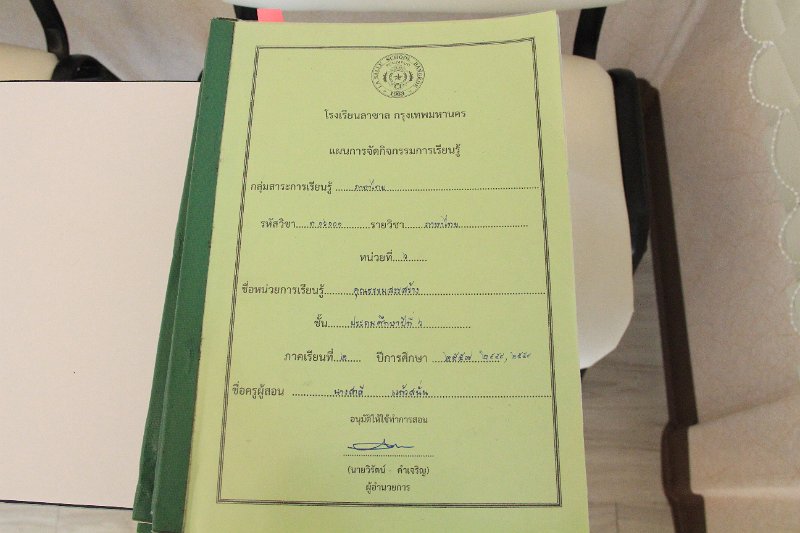 LASALLE SCHOOL BANGKOK
1963
โรงเรียนลาซาล กรุงเทพมหานคร
แผนการจัดกิจกรรมการเรียนรู้
กลุ่มสาระการเรียนรู้ ภาษาไทย
รหัสวิชา ท ๑๖๑๐๑ รายวิชา ภาษาไทย
หน่วยที่ ๑
ชื่อหน่วยการเรียนรู้ คุณธรรมสรรสร้าง
ชั้น ประถมศึกษาปีที่ ๖
ภาคเรียนที่ ๒ ปีการศึกษา ๒๕๕๗
ชื่อครูผู้สอน นางสาลี แก้วสนั่น
อนุมัติให้ใช้ทำการสอน
(นายวิรัตน์ - คำเจริญ)
ผู้อำนวยการ